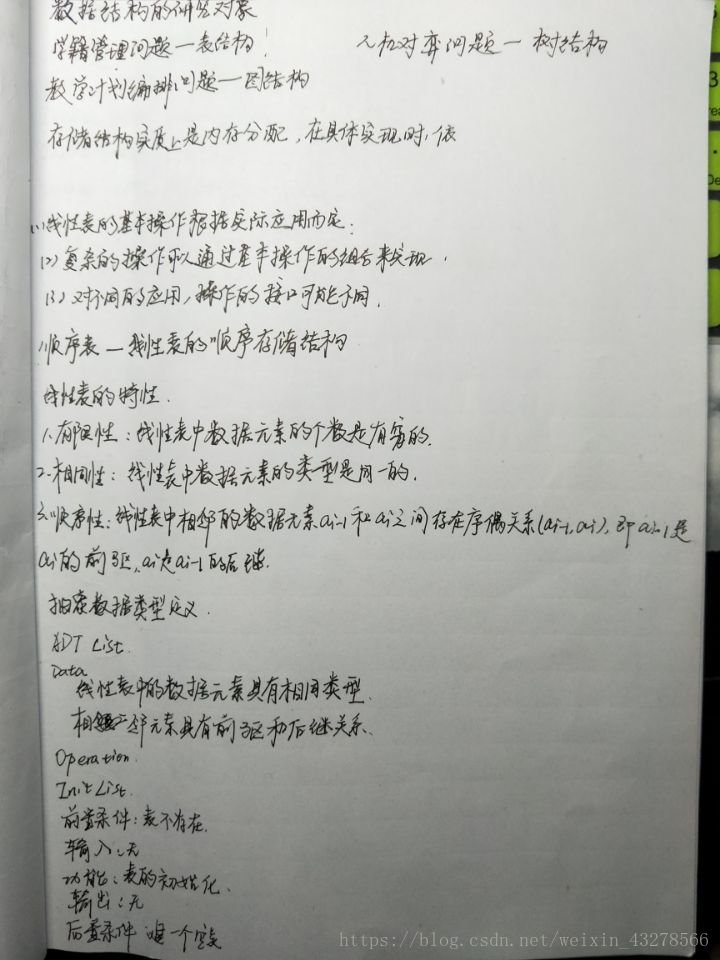 数据结构的研究对象
学籍管理问题—表结构! 人机对弈问题—树结构
教学计划编排问题—图结构
存储结构实质上是内存分配,在具体实现时,依
(1)线性表的基本操作根据实际应用而定;
(2)复杂的操作可以通过基本操作的组合来实现.
(3)对不同的应用,操作的接口可能不同.
顺序表—线性表的顺序存储结构
线性表的特性.
1.有限性:线性表中数据元素的个数是有穷的.
2.相同性:线性表中数据元素的类型是同一的.
3.顺序性:线性表中相邻的数据元素ai-1和ai之间存在序偶关系(ai-1,ai),即ai-1是
ai的前驱,ai是ai-1的后继.
抽象数据类型定义.
ADT List.
Data
线性表中的数据元素具有相同类型.
相邻元素具有前驱和后继关系.
Operation.
InitList.
前置条件:表不存在.
输入:无
功能:表的初始化.
输出:无
后置条件 建一个空表
https://blog.csdn.net/weixin_43278566